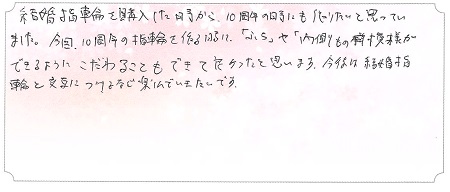 結婚指輪を購入した時から、10周年の時にも作りたいと思ってい
ました。今回、10周年の指輪を作る際に、「ふち」や「内側」もの
できるように こだわることもできて良かったと思います。今後は結婚指
輪と交互につけるなど楽しんでいきたいです。